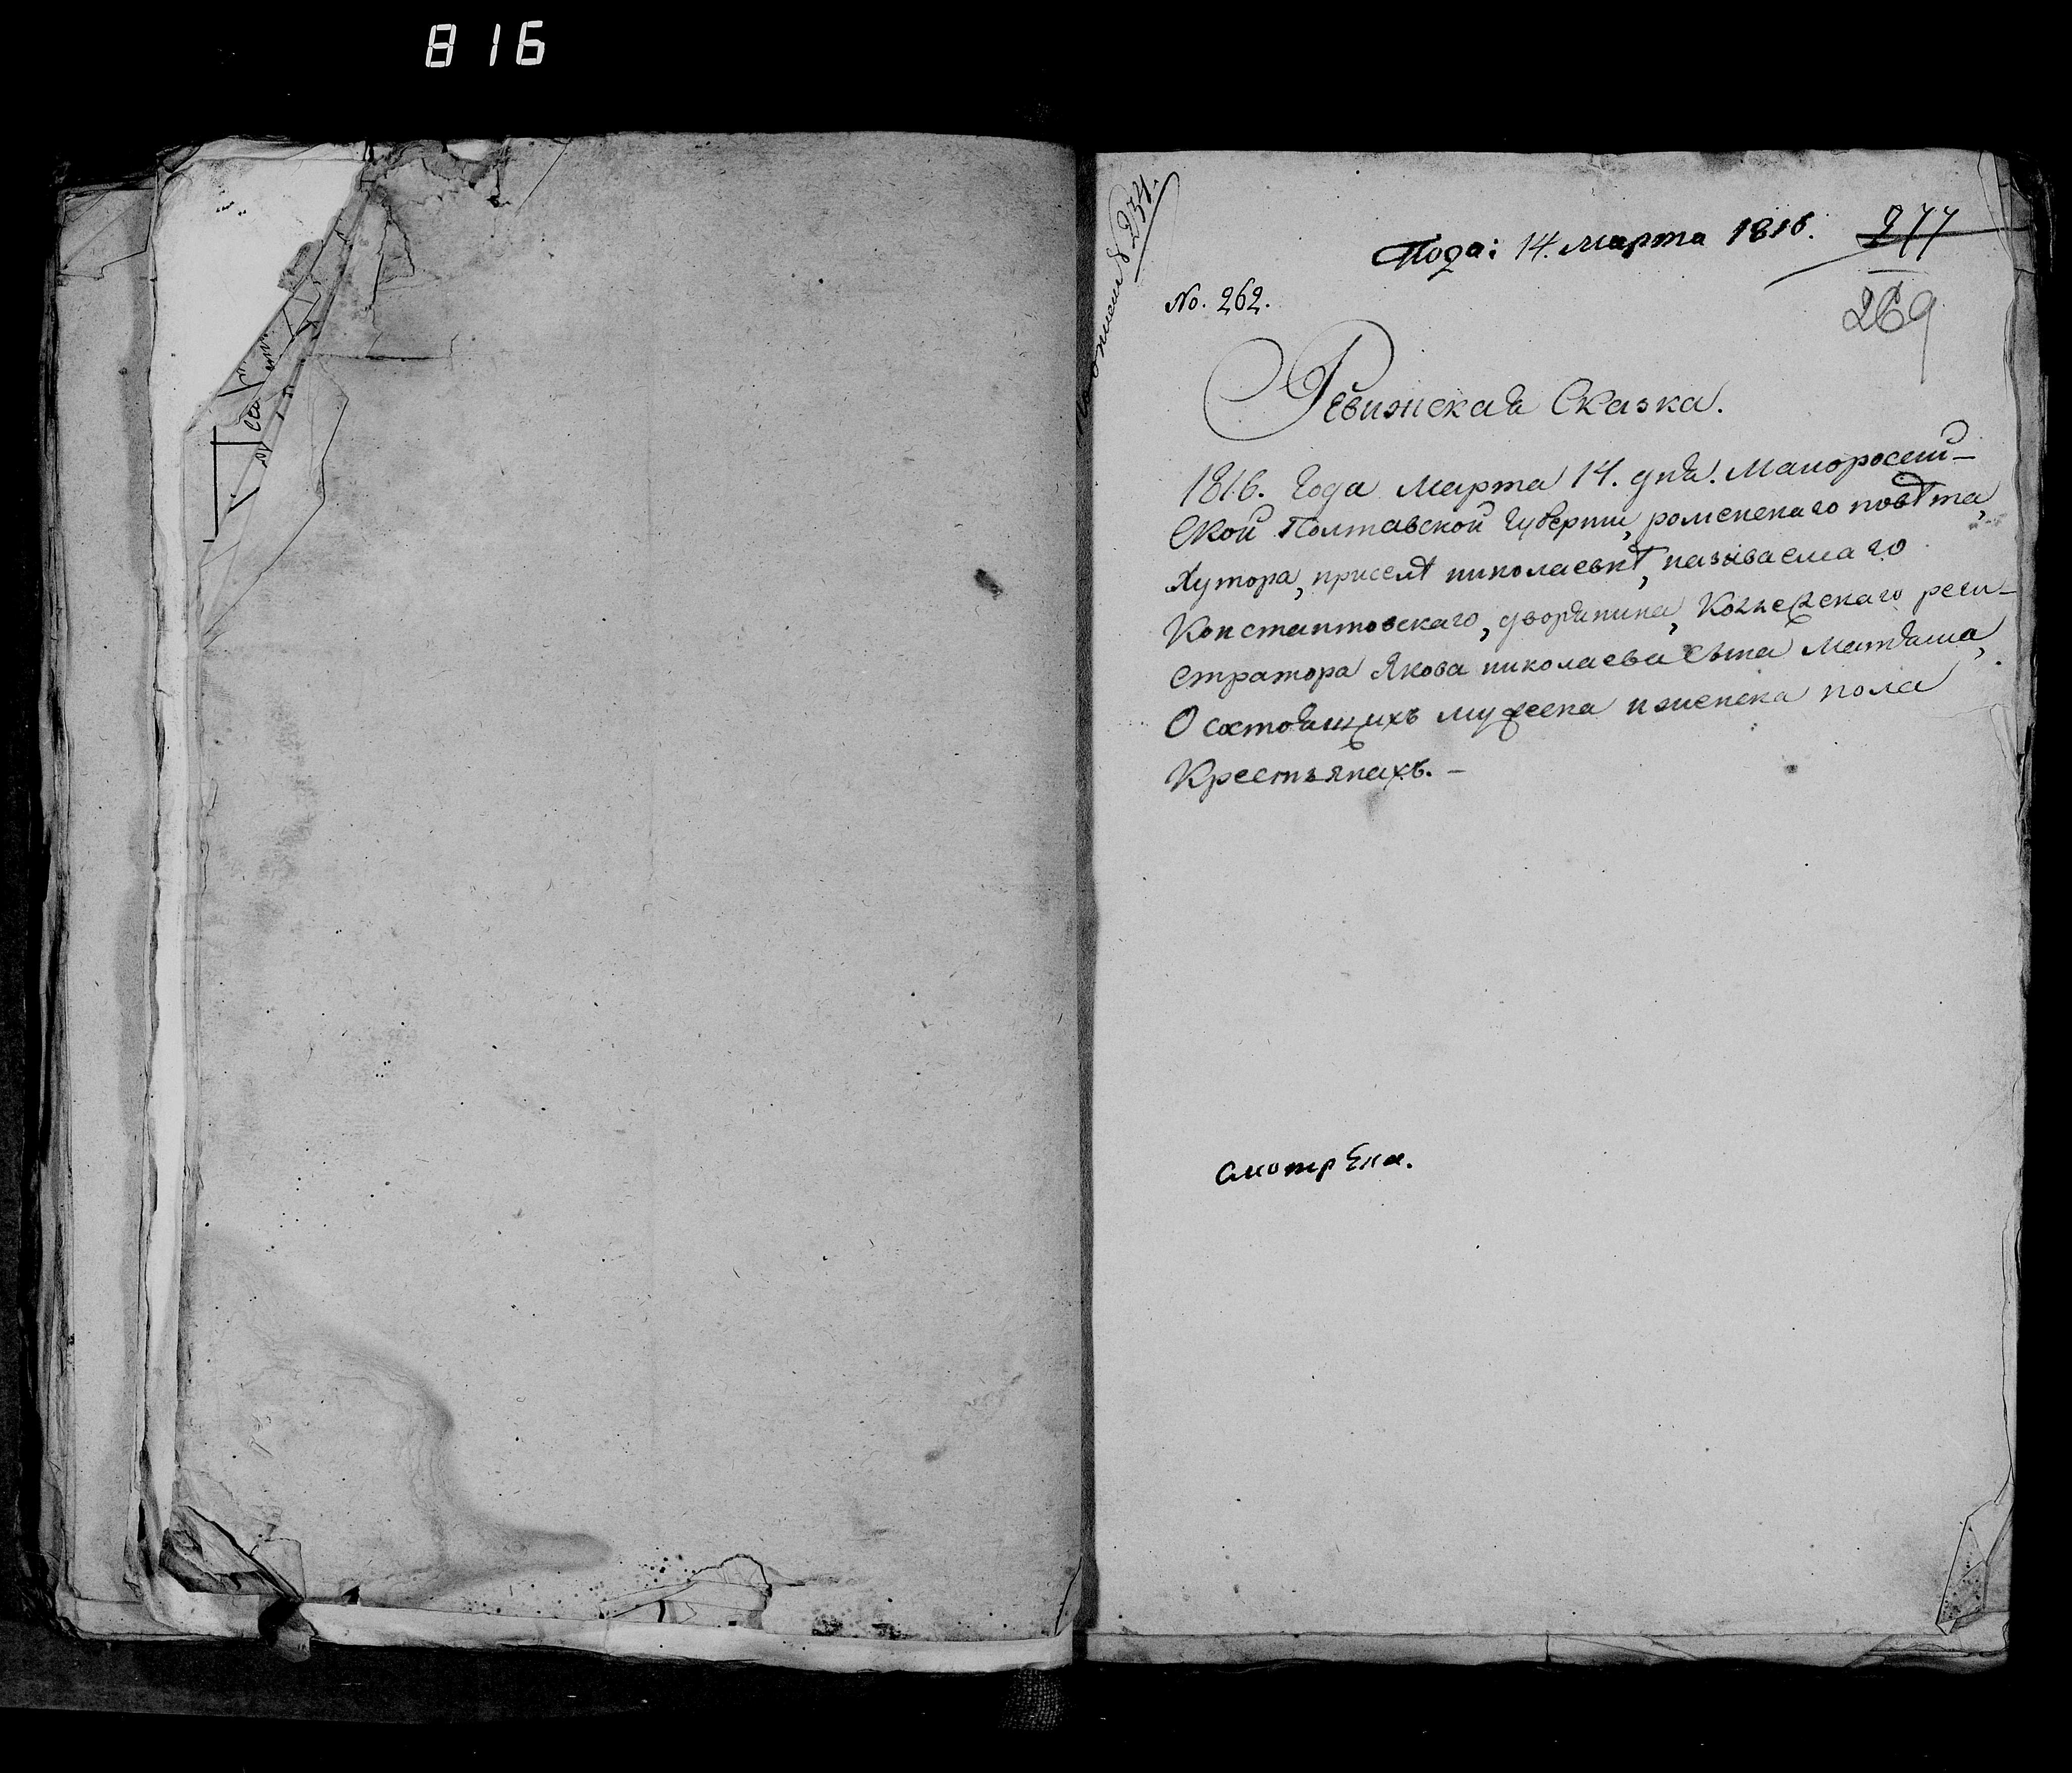 816
Пода: 14. марта 1816.
277
No. 262.
269
Ревижская Сказка.
1816. Года Марта 14. дня. Малоросий-
ской Полтавской Губернии, роменскаго повѣта,
Хутора, приселѣ николаевкѣ, называемаго
Константовскаго, дворянина, Коллежскаго реги-
стратора Якова николаева сына Матяша,
О состоящихъ мужеска и женска пола
Крестьянахъ. –
смотрѣна.